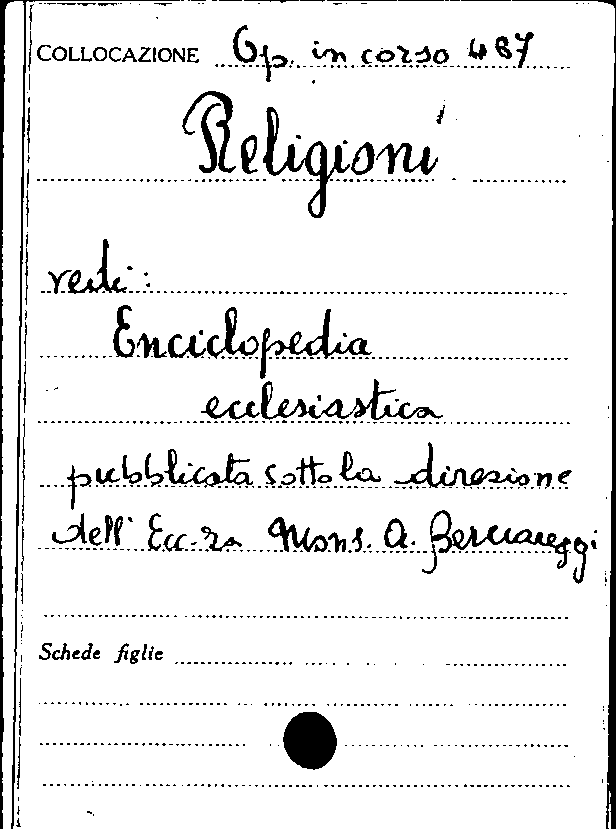 COLLOCAZIONE Op. in corso 487
Religioni
vedi:
Enciclopedia
ecclesiastica
pubblicata sotto la direzione
dell' Ecc.za Mons. A. Bernareggi
Schede figlie